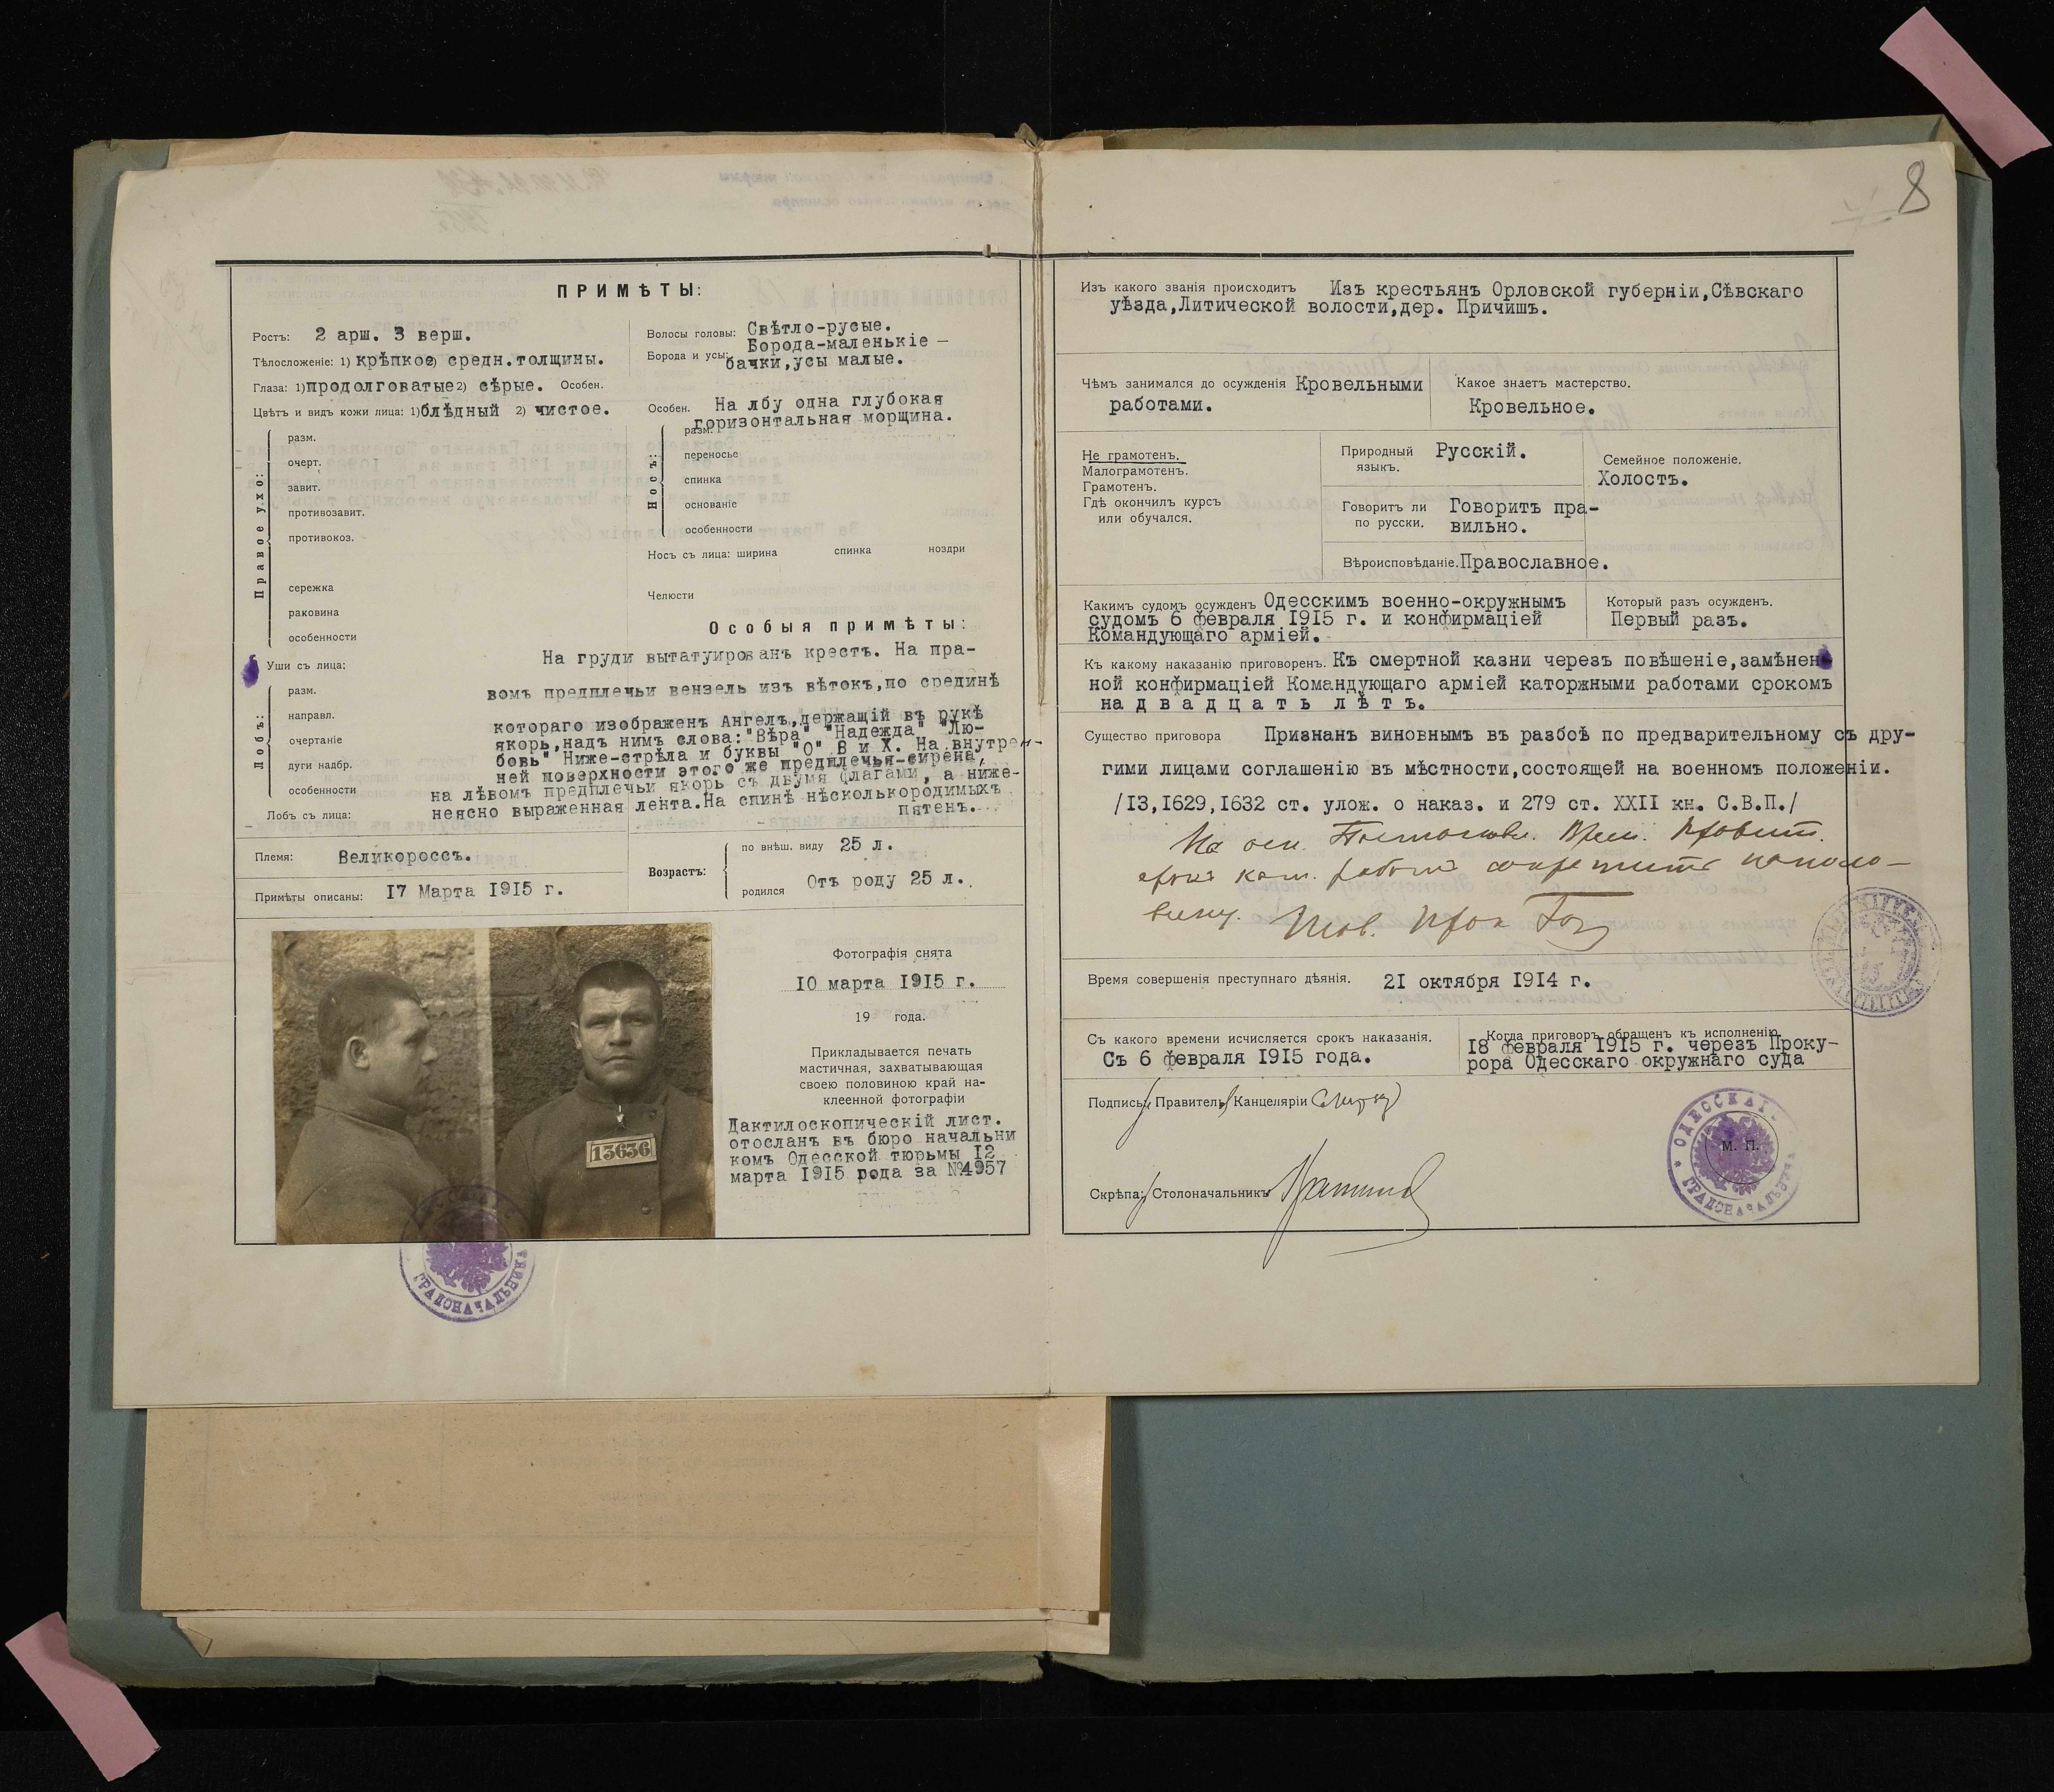 8
ПРИМѢТЫ:
Ростъ: 2 арш. 3 верш.
Тѣлосложеніе: 1) крѣпкое 2) средн.толщины.
Глаза: 1) продолговатые 2) сѣрые. Особен.
Цвѣтъ и видъ кожи лица: 1) блѣдный 2) чистое.
Волосы головы: Свѣтло-русые.
Борода и усы: Борода-маленькіе —
бачки,усы малые.
Особен. На лбу одна глубокая
горизонтальная морщина.
Правое ухо:
разм.
очерт.
завит.
противозавит.
противокоз.
сережка
раковина
особенности
Носъ:
разм.
переносье
спинка
основаніе
особенности
Носъ съ лица: ширина спинка ноздри
Челюсти
Особыя примѣты:
Уши съ лица:
Лобъ:
разм.
направл.
очертаніе
дуги надбр.
особенности
Лобъ съ лица:
На груди вытатуированъ крестъ. На пра-
вомъ предплечьи вензель изъ вѣтокъ,по срединѣ
котораго изображенъ Ангелъ,держащій въ рукѣ
якорь,надъ нимъ слова:"Вѣра" "Надежда" "Лю-
бовь" Ниже-стрѣла и буквы "О" В и Х. На внутрен-
ней поверхности этого же предплечья-сирена,
на лѣвомъ предплечьи якорь съ двумя флагами, а ниже-
неясно выраженная лента.На спинѣ нѣсколькородимыхъ
пятенъ.
Племя: Великороссъ.
Примѣты описаны: 17 Марта 1915 г.
Возрастъ:
по внѣш. виду 25 л.
родился Отъ роду 25 л.
Фотографія снята
10 марта 1915 г.
19 года.
Прикладывается печать
мастичная, захватывающая
своею половиною край на-
клеенной фотографіи
Дактилоскопическій лист.
отосланъ въ бюро начальни
комъ Одесской тюрьмы 12
марта 1915 года за №4957
13636
ГРАДОНАЧАЛЬНИКЪ
Изъ какого званія происходитъ Изъ крестьянъ Орловской губерніи,Сѣвскаго
уѣзда,Литической волости,дер. Причишъ.
Чѣмъ занимался до осужденія Кровельными
работами.
Какое знаетъ мастерство.
Кровельное.
Не грамотенъ.
Малограмотенъ.
Грамотенъ.
Гдѣ окончилъ курсъ
или обучался.
Природный
языкъ. Русскій.
Говоритъ ли
по русски. Говоритъ пра-
вильно.
Вѣроисповѣданіе. Православное.
Семейное положеніе.
Холостъ.
Какимъ судомъ осужденъ Одесскимъ военно-окружнымъ
судомъ 6 февраля 1915 г. и конфирмаціей
Командующаго арміей.
Который разъ осужденъ.
Первый разъ.
Къ какому наказанію приговоренъ. Къ смертной казни черезъ повѣшеніе,замѣнен
ной конфирмаціей Командующаго арміей каторжными работами срокомъ
на двадцать лѣтъ.
Существо приговора Признанъ виновнымъ въ разбоѣ по предварительному съ дру-
гими лицами соглашенію въ мѣстности,состоящей на военномъ положеніи.
/13,1629,1632 ст. улож. о наказ. и 279 ст. XXII кн. С.В.П./
На осн. Постановл. Врем. Правит.
срокъ кат. работъ сократить наполо-
вину. Тов. Прок
Время совершенія преступнаго дѣянія. 21 октября 1914 г.
Съ какого времени исчисляется срокъ наказанія.
Съ 6 февраля 1915 года.
Когда приговоръ обращенъ къ исполненію.
18 февраля 1915 г. черезъ Проку-
рора Одесскаго окружнаго суда
Подпись: Правитель Канцеляріи
Скрѣпа: Столоначальникъ
М. П.
ОДЕССКАГО
ГРАДОНАЧАЛЬНИКА